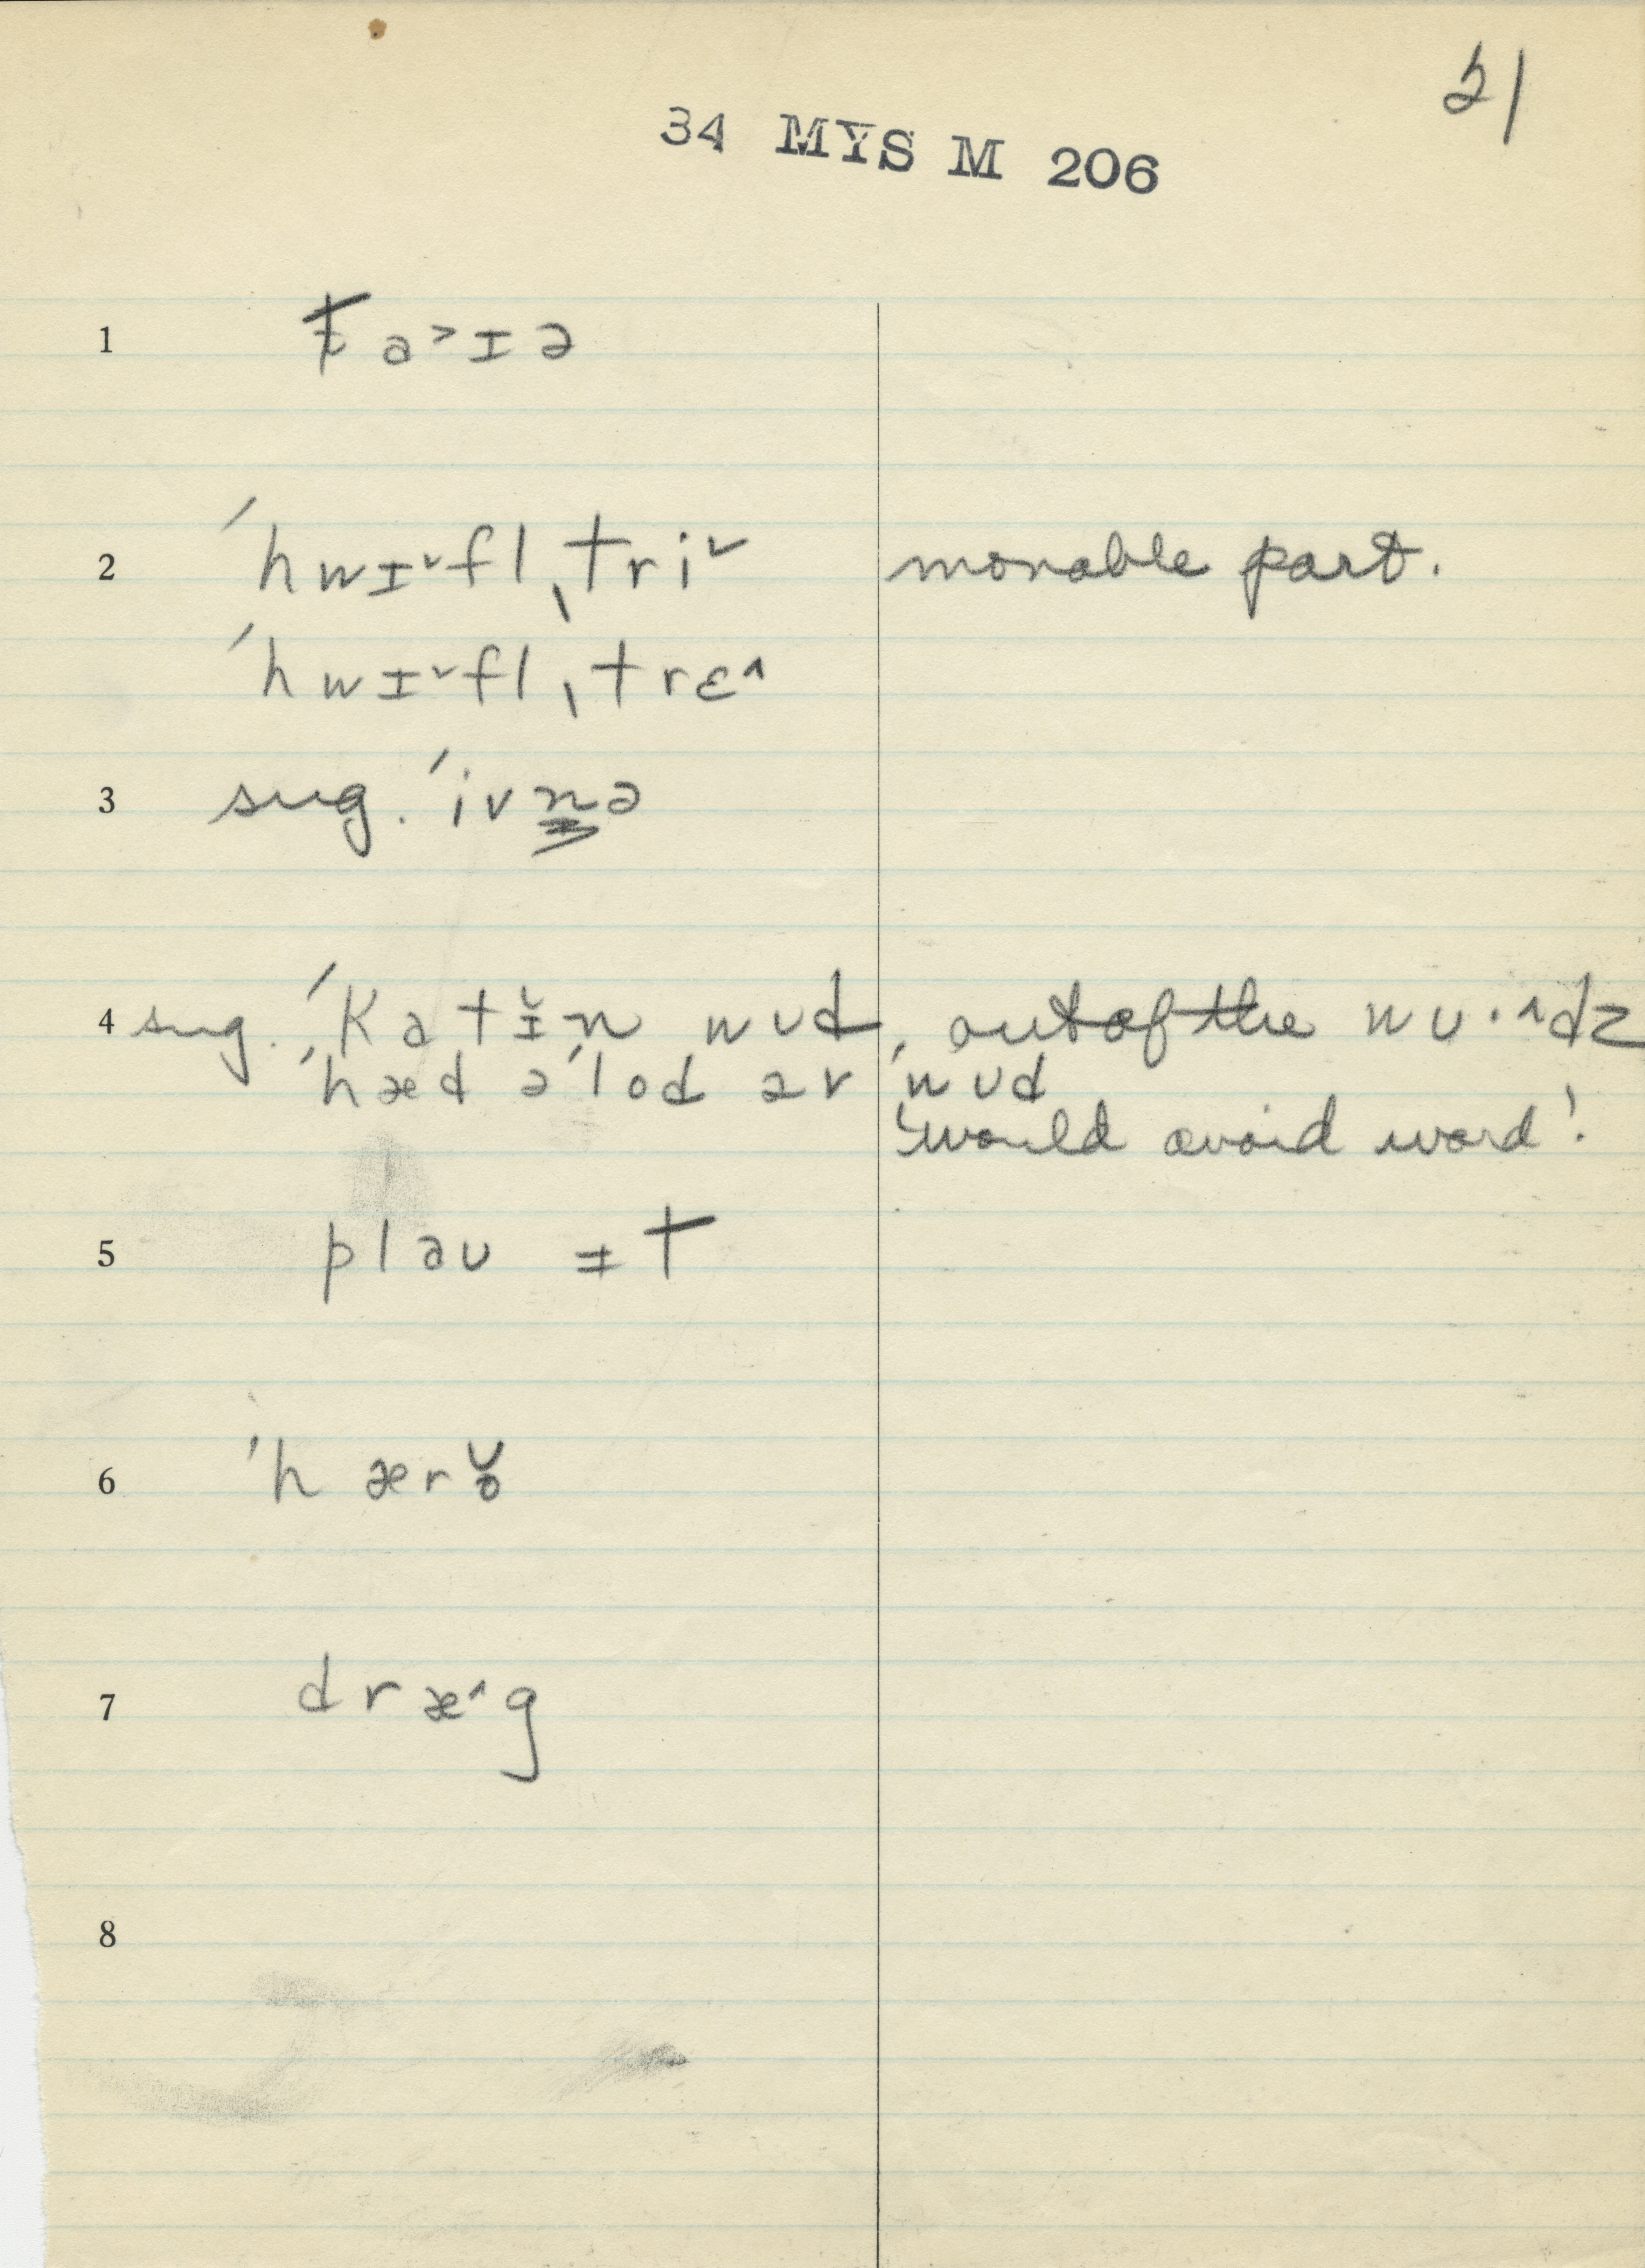 51
34 MYS M 206
1 ta˃ɪə
2 ˈhwɪ˅flˌtri˅ movable part.
ˈhwɪ˅flˌtrɛ˄
3 sug. ˈivn̳ə
4 sug. ˈkatɪ̆n wʊd, out of the wʊ·˄dz
ˈhæd əˈlod əv ˈwʊd
'would avoid word'.
5 plaʊ ɪt
6 ˈhærŏ
7 dræ˄g
8